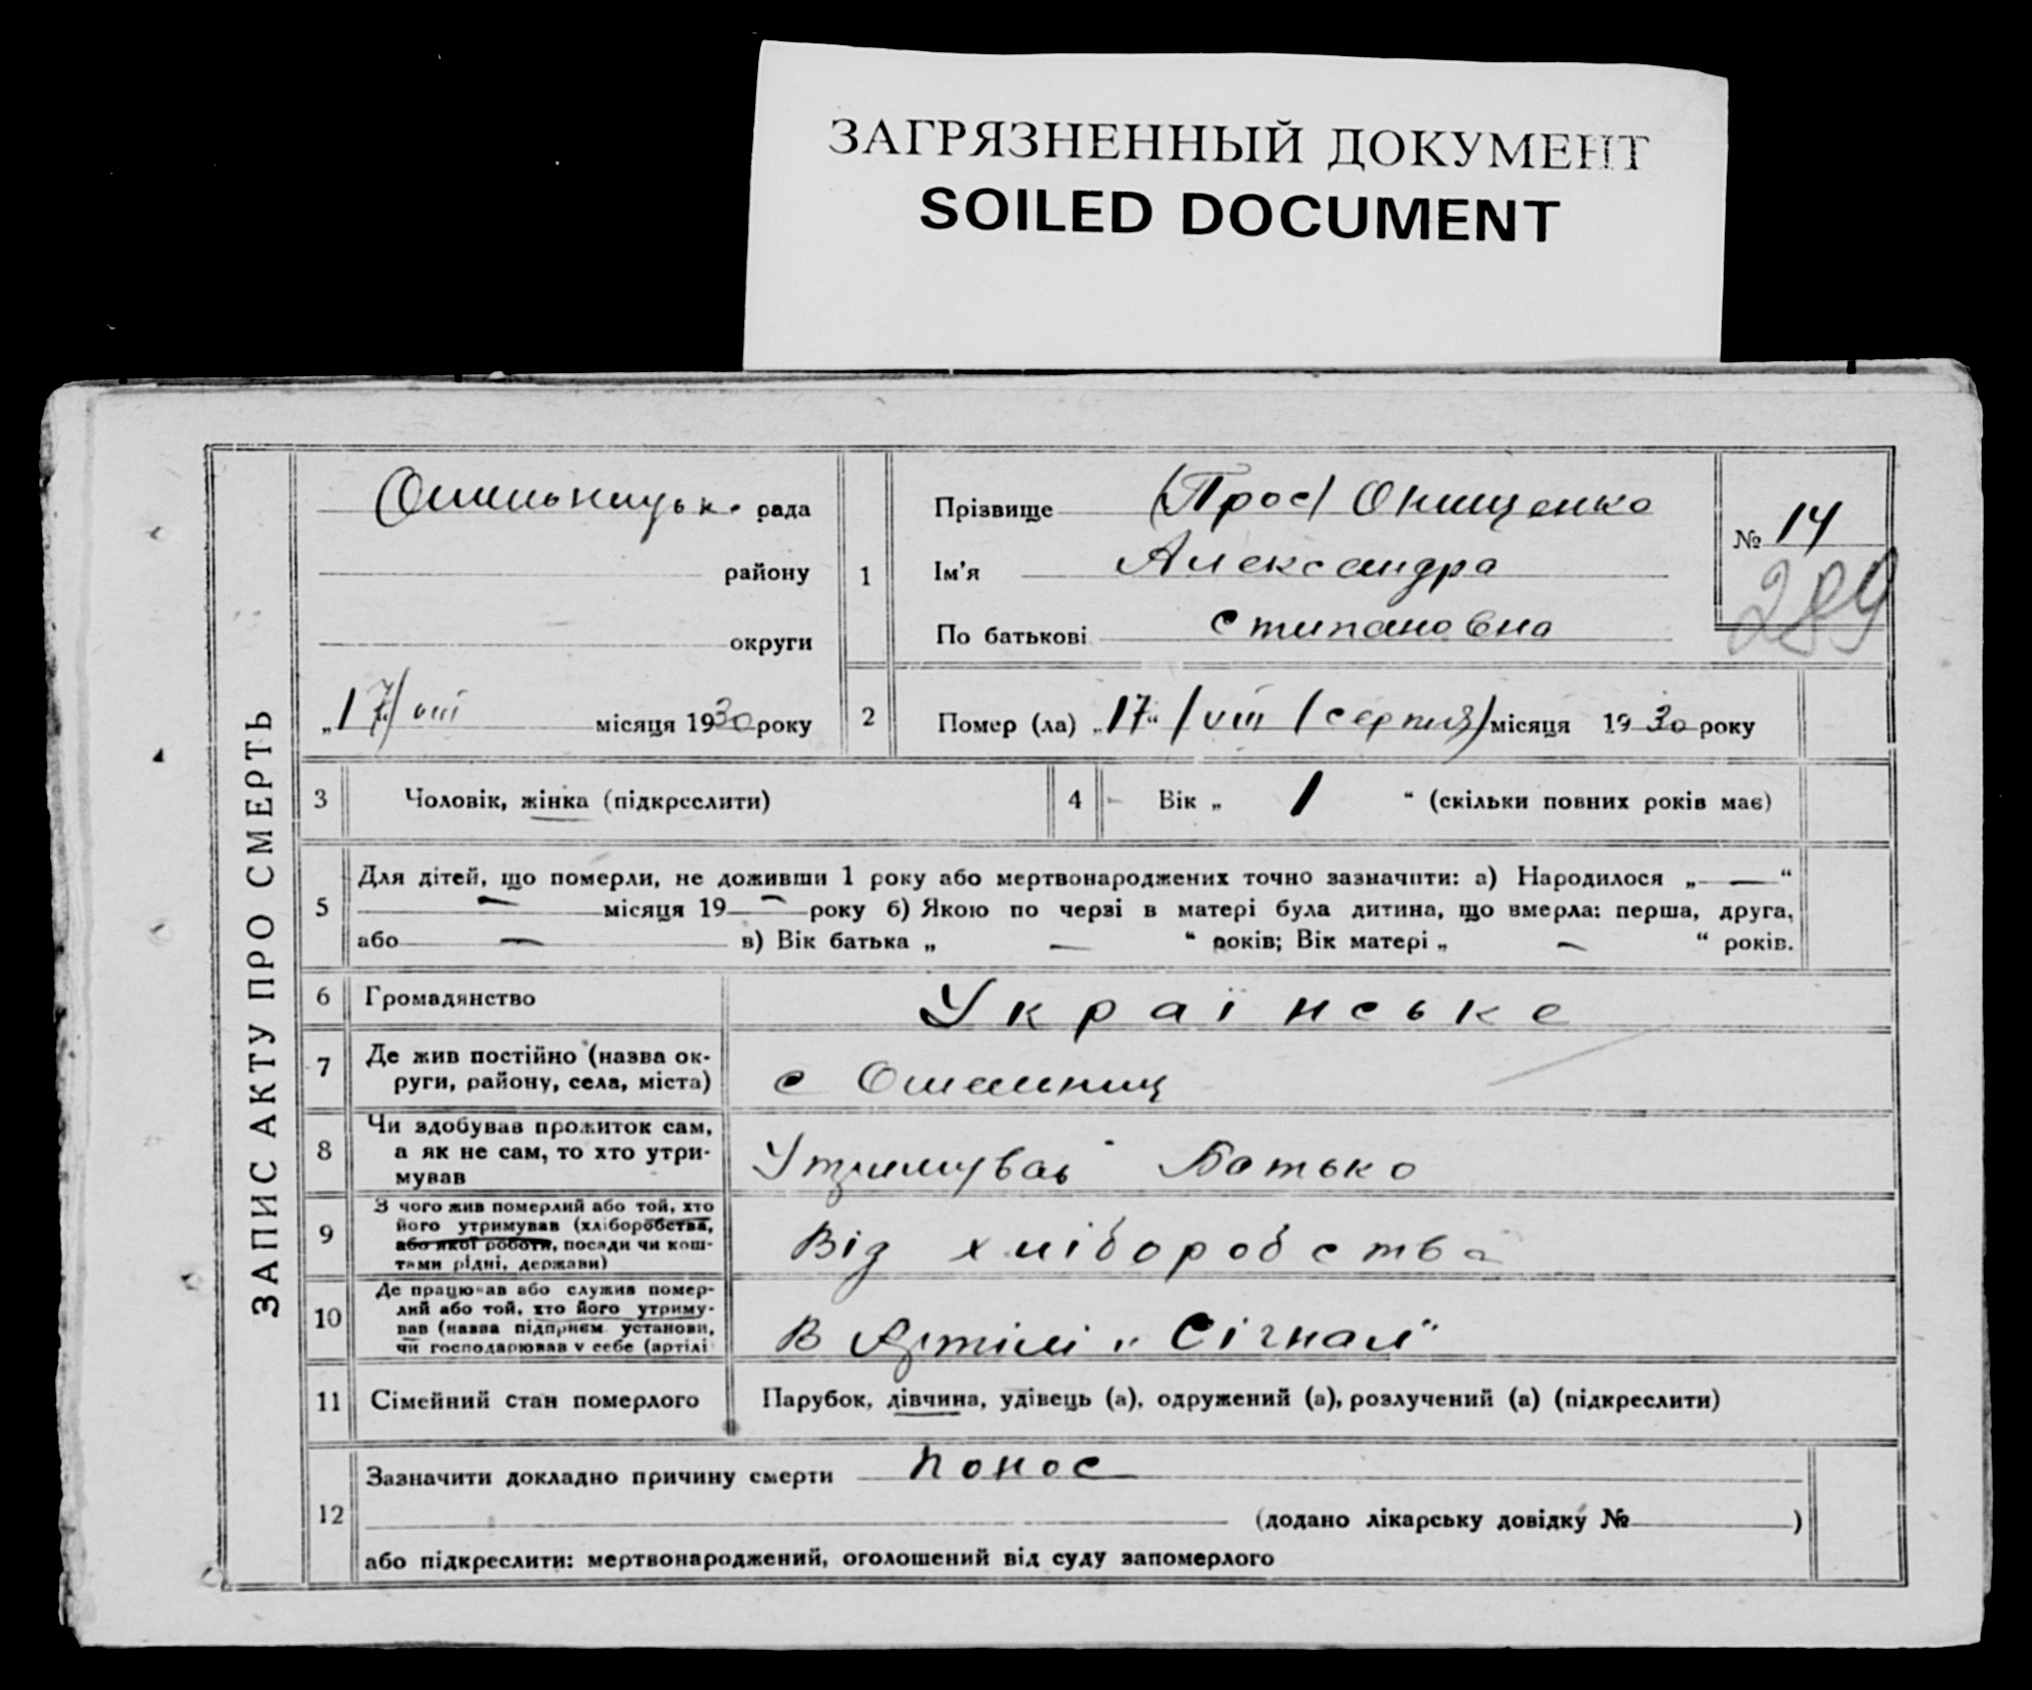 ЗАГРЯЗНЕННЫЙ ДОКУМЕНТ
SOILED DOCUMENT
ЗАПИС АКТУ ПРО СМЕРТЬ
рада
району
округи
„17/VIII місяця 1930 року
1
Прізвище (Прос) Онищенко
Ім'я Александра
По батькові Стипановна
№ 14
289
2 Помер (ла) „17“ /VIII (серпня) місяця 1930 року
3 Чоловік, жінка (підкреслити)
4 Вік „ 1 “ (скільки повних років має)
5 Для дітей, що померли, не доживши 1 року або мертвонароджених точно зазначити: а) Народилося „ — “
— місяця 19 — року б) Якою по черзі в матері була дитина, що вмерла: перша, друга,
або — в) Вік батька „ — “ років; Вік матері „ — “ років.
6 Громадянство Українське
7 Де жив постійно (назва ок-
руги, району, села, міста) с
8 Чи здобував прожиток сам,
а як не сам, то хто утри-
мував
Утримував Батько
9 З чого жив померлий або той, хто
його утримував (хліборобства,
або якої роботи, посади чи кош-
тами рідні, держави)
Від хліборобства
10 Де працював або служив помер-
лий або той, хто його утриму-
вав (назва підприєм. установи,
чи господарював у себе (артілі
В Артілі „Сігнал"
11 Сімейний стан померлого Парубок, дівчина, удівець (а), одружений (а), розлучений (а) (підкреслити)
12 Зазначити докладно причину смерти понос
(додано лікарську довідку № )
або підкреслити: мертвонароджений, оголошений від суду запомерлого